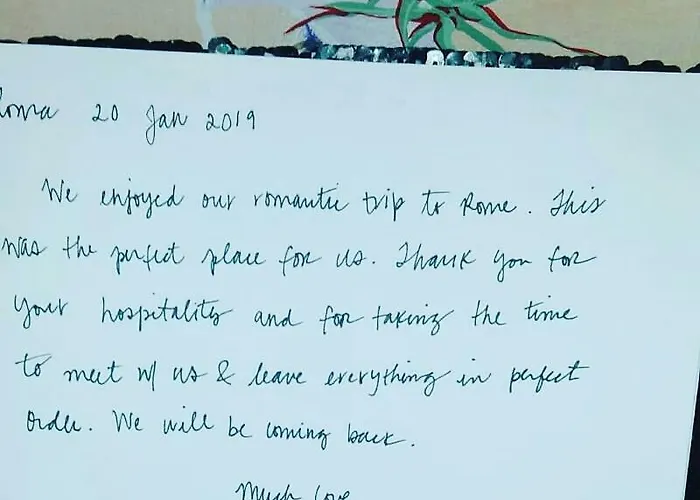 Roma 20 Jan 2019
We enjoyed our romantic trip to Rome. This
was the perfect place for us. Thank you for
your hospitality and for taking the time
to meet w/ us & leave everything in perfect
order. We will be coming back.
Much Love